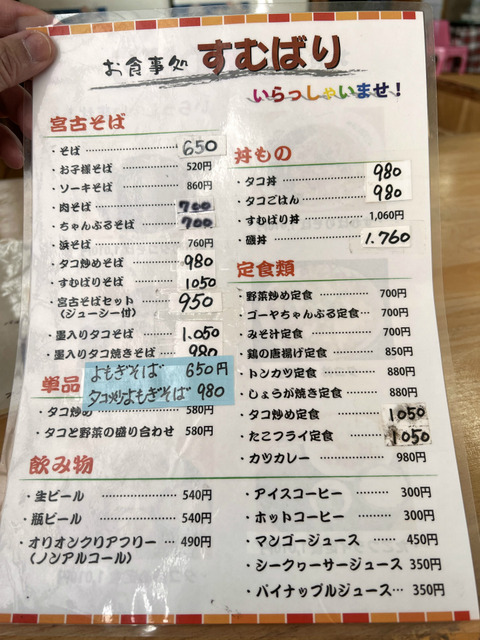 お食事処 すむばり
いらっしゃいませ！
宮古そば
・そば 650
・お子様そば 520円
・ソーキそば 860円
・肉そば 700
・ちゃんぷるそば 700
・浜そば 760円
・タコ炒めそば 980
・すむばりそば 1050
・宮古そばセット 950
（ジューシー付）
・墨入りタコそば 1.050
・墨入りタコ焼きそば 980
よもぎそば 650円
タコ炒よもぎそば 980
単品
・タコ炒め 580円
・タコと野菜の盛り合わせ 580円
丼もの
・タコ丼 980
・タコごはん 980
・すむばり丼 1,060円
・磯丼 1.760
定食類
・野菜炒め定食 700円
・ゴーヤちゃんぷる定食… 700円
・みそ汁定食 700円
・鶏の唐揚げ定食 850円
・トンカツ定食 880円
・しょうが焼き定食 880円
・タコ炒め定食 1050
・たこフライ定食 1050
・カツカレー 980円
飲み物
・生ビール 540円
・瓶ビール 540円
・オリオンクリアフリー … 490円
（ノンアルコール）
・アイスコーヒー 300円
・ホットコーヒー 300円
・マンゴージュース 450円
・シークヮーサージュース 350円
・パイナップルジュース… 350円